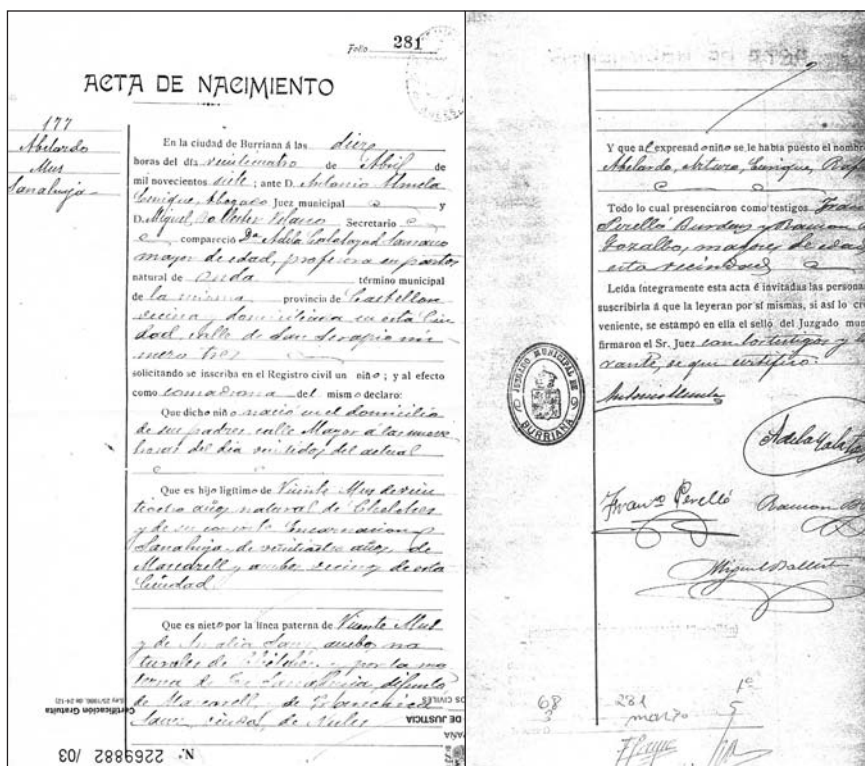 Folio 281
ACTA DE NACIMIENTO
177
Abelardo
Mus
Sanahuja
En la ciudad de Burriana á las diez
horas del día veinticuatro de Abril de
mil novecientos siete; ante D. Antonio Almela
Enrique, Abogado Juez municipal y
D. Miguel Ballester Velasco Secretario
compareció Dª Adela Calatayud
mayor de edad, profesora en partos
natural de Onda término municipal
de la misma provincia de Castellón
vecina y domiciliada en esta Ciu
dad, calle de San Serapio nú
mero tres
solicitando se inscriba en el Registro civil un niño; y al efecto
como comadrona del mismo declaro:
Que dicho niño nació en el domicilio
de sus padres calle Mayor á las nueve
horas del día veintidos del actual
Que es hijo ligtimo de Vicente Mus de vein
ticuatro años, natural de Chilches
y de su consorte Encarnacion
Sanahuja, de veinticuatro años, de
Mascarell y ambos vecinos de esta
Ciudad.
Que es nieto por la línea paterna de Vicente Mus
y de Amalia Sanz ambos na
turales de Chilches y por la ma
terna de Sanahuja, difunto
de Mascarell, y de
viuda, de Nules
(Ley 25/1986, de 24-12)
Certificación Gratuita
OS CIVILES
DE JUSTICIA
AÑA
N.º 2269882 /03
Y que al expresado niño se le había puesto el nombr
Abelardo, Arturo, Enrique, Rafa
Todo lo cual presenciaron como testigos Franc
Perelló Burdeus y Ramon
Gozalbo, mayores de edad
esta vecindad
Leída íntegramente esta acta é invitadas las persona
suscribirla á que la leyeran por sí mismas, si así lo cre
veniente, se estampó en ella el sello del Juzgado mun
firmaron el Sr. Juez con los testigos y
rante, de que certifico.
JUZGADO MUNICIPAL DE
BURRIANA
Antonio Almela
Adela Calata
Franº Perelló
Ramon
Miguel Ballester
68
281
1º
3
marzo
5